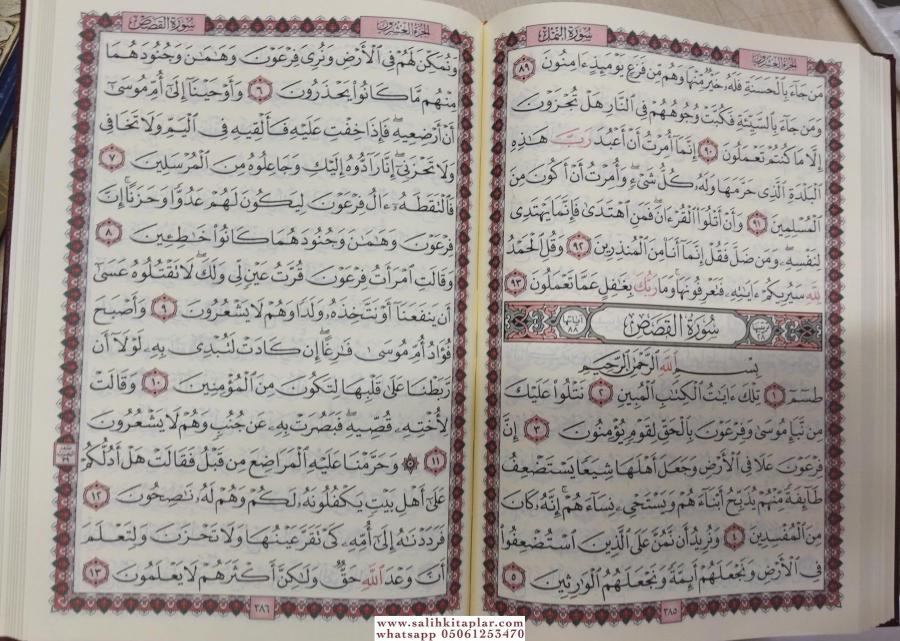 الجزء العشرون
سورة النمل
مَن جَآءَ بِٱلْحَسَنَةِ فَلَهُۥ خَيْرٌ مِّنْهَا وَهُم مِّن فَزَعٍ يَوْمَئِذٍ ءَامِنُونَ ٨٩
وَمَن جَآءَ بِٱلسَّيِّئَةِ فَكُبَّتْ وُجُوهُهُمْ فِى ٱلنَّارِ هَلْ تُجْزَوْنَ
إِلَّا مَا كُنتُمْ تَعْمَلُونَ ٩٠ إِنَّمَآ أُمِرْتُ أَنْ أَعْبُدَ رَبَّ هَٰذِهِ
ٱلْبَلْدَةِ ٱلَّذِى حَرَّمَهَا وَلَهُۥ كُلُّ شَىْءٍ ۖ وَأُمِرْتُ أَنْ أَكُونَ مِنَ
ٱلْمُسْلِمِينَ ٩١ وَأَنْ أَتْلُوَا۟ ٱلْقُرْءَانَ ۖ فَمَنِ ٱهْتَدَىٰ فَإِنَّمَا يَهْتَدِى
لِنَفْسِهِۦ ۖ وَمَن ضَلَّ فَقُلْ إِنَّمَآ أَنَا۠ مِنَ ٱلْمُنذِرِينَ ٩٢ وَقُلِ ٱلْحَمْدُ
لِلَّهِ سَيُرِيكُمْ ءَايَٰتِهِۦ فَتَعْرِفُونَهَا ۚ وَمَا رَبُّكَ بِغَٰفِلٍ عَمَّا تَعْمَلُونَ ٩٣
سُورَةُ القَصَصِ
آياتها ٨٨
بِسْمِ ٱللَّهِ ٱلرَّحْمَٰنِ ٱلرَّحِيمِ
طسٓمٓ ١ تِلْكَ ءَايَٰتُ ٱلْكِتَٰبِ ٱلْمُبِينِ ٢ نَتْلُوا۟ عَلَيْكَ
مِن نَّبَإِ مُوسَىٰ وَفِرْعَوْنَ بِٱلْحَقِّ لِقَوْمٍ يُؤْمِنُونَ ٣ إِنَّ
فِرْعَوْنَ عَلَا فِى ٱلْأَرْضِ وَجَعَلَ أَهْلَهَا شِيَعًا يَسْتَضْعِفُ
طَآئِفَةً مِّنْهُمْ يُذَبِّحُ أَبْنَآءَهُمْ وَيَسْتَحْىِۦ نِسَآءَهُمْ ۚ إِنَّهُۥ كَانَ
مِنَ ٱلْمُفْسِدِينَ ٤ وَنُرِيدُ أَن نَّمُنَّ عَلَى ٱلَّذِينَ ٱسْتُضْعِفُوا۟
فِى ٱلْأَرْضِ وَنَجْعَلَهُمْ أَئِمَّةً وَنَجْعَلَهُمُ ٱلْوَٰرِثِينَ ٥
٣٨٥
الجزء العشرون
سورة القصص
وَنُمَكِّنَ لَهُمْ فِى ٱلْأَرْضِ وَنُرِىَ فِرْعَوْنَ وَهَٰمَٰنَ وَجُنُودَهُمَا
مِنْهُم مَّا كَانُوا۟ يَحْذَرُونَ ٦ وَأَوْحَيْنَآ إِلَىٰٓ أُمِّ مُوسَىٰٓ
أَنْ أَرْضِعِيهِ ۖ فَإِذَا خِفْتِ عَلَيْهِ فَأَلْقِيهِ فِى ٱلْيَمِّ وَلَا تَخَافِى
وَلَا تَحْزَنِىٓ ۖ إِنَّا رَآدُّوهُ إِلَيْكِ وَجَاعِلُوهُ مِنَ ٱلْمُرْسَلِينَ ٧
فَٱلْتَقَطَهُۥٓ ءَالُ فِرْعَوْنَ لِيَكُونَ لَهُمْ عَدُوًّا وَحَزَنًا ۗ إِنَّ
فِرْعَوْنَ وَهَٰمَٰنَ وَجُنُودَهُمَا كَانُوا۟ خَٰطِـِٔينَ ٨
وَقَالَتِ ٱمْرَأَتُ فِرْعَوْنَ قُرَّتُ عَيْنٍ لِّى وَلَكَ ۖ لَا تَقْتُلُوهُ عَسَىٰٓ
أَن يَنفَعَنَآ أَوْ نَتَّخِذَهُۥ وَلَدًا وَهُمْ لَا يَشْعُرُونَ ٩ وَأَصْبَحَ
فُؤَادُ أُمِّ مُوسَىٰ فَٰرِغًا ۖ إِن كَادَتْ لَتُبْدِى بِهِۦ لَوْلَآ أَن
رَّبَطْنَا عَلَىٰ قَلْبِهَا لِتَكُونَ مِنَ ٱلْمُؤْمِنِينَ ١٠ وَقَالَتْ
لِأُخْتِهِۦ قُصِّيهِ ۖ فَبَصُرَتْ بِهِۦ عَن جُنُبٍ وَهُمْ لَا يَشْعُرُونَ
١١ ۞ وَحَرَّمْنَا عَلَيْهِ ٱلْمَرَاضِعَ مِن قَبْلُ فَقَالَتْ هَلْ أَدُلُّكُمْ
عَلَىٰٓ أَهْلِ بَيْتٍ يَكْفُلُونَهُۥ لَكُمْ وَهُمْ لَهُۥ نَٰصِحُونَ ١٢
فَرَدَدْنَٰهُ إِلَىٰٓ أُمِّهِۦ كَىْ تَقَرَّ عَيْنُهَا وَلَا تَحْزَنَ وَلِتَعْلَمَ
أَنَّ وَعْدَ ٱللَّهِ حَقٌّ وَلَٰكِنَّ أَكْثَرَهُمْ لَا يَعْلَمُونَ ١٣
٣٨٦
www.salihkitaplar.com
whatsapp 05061253470